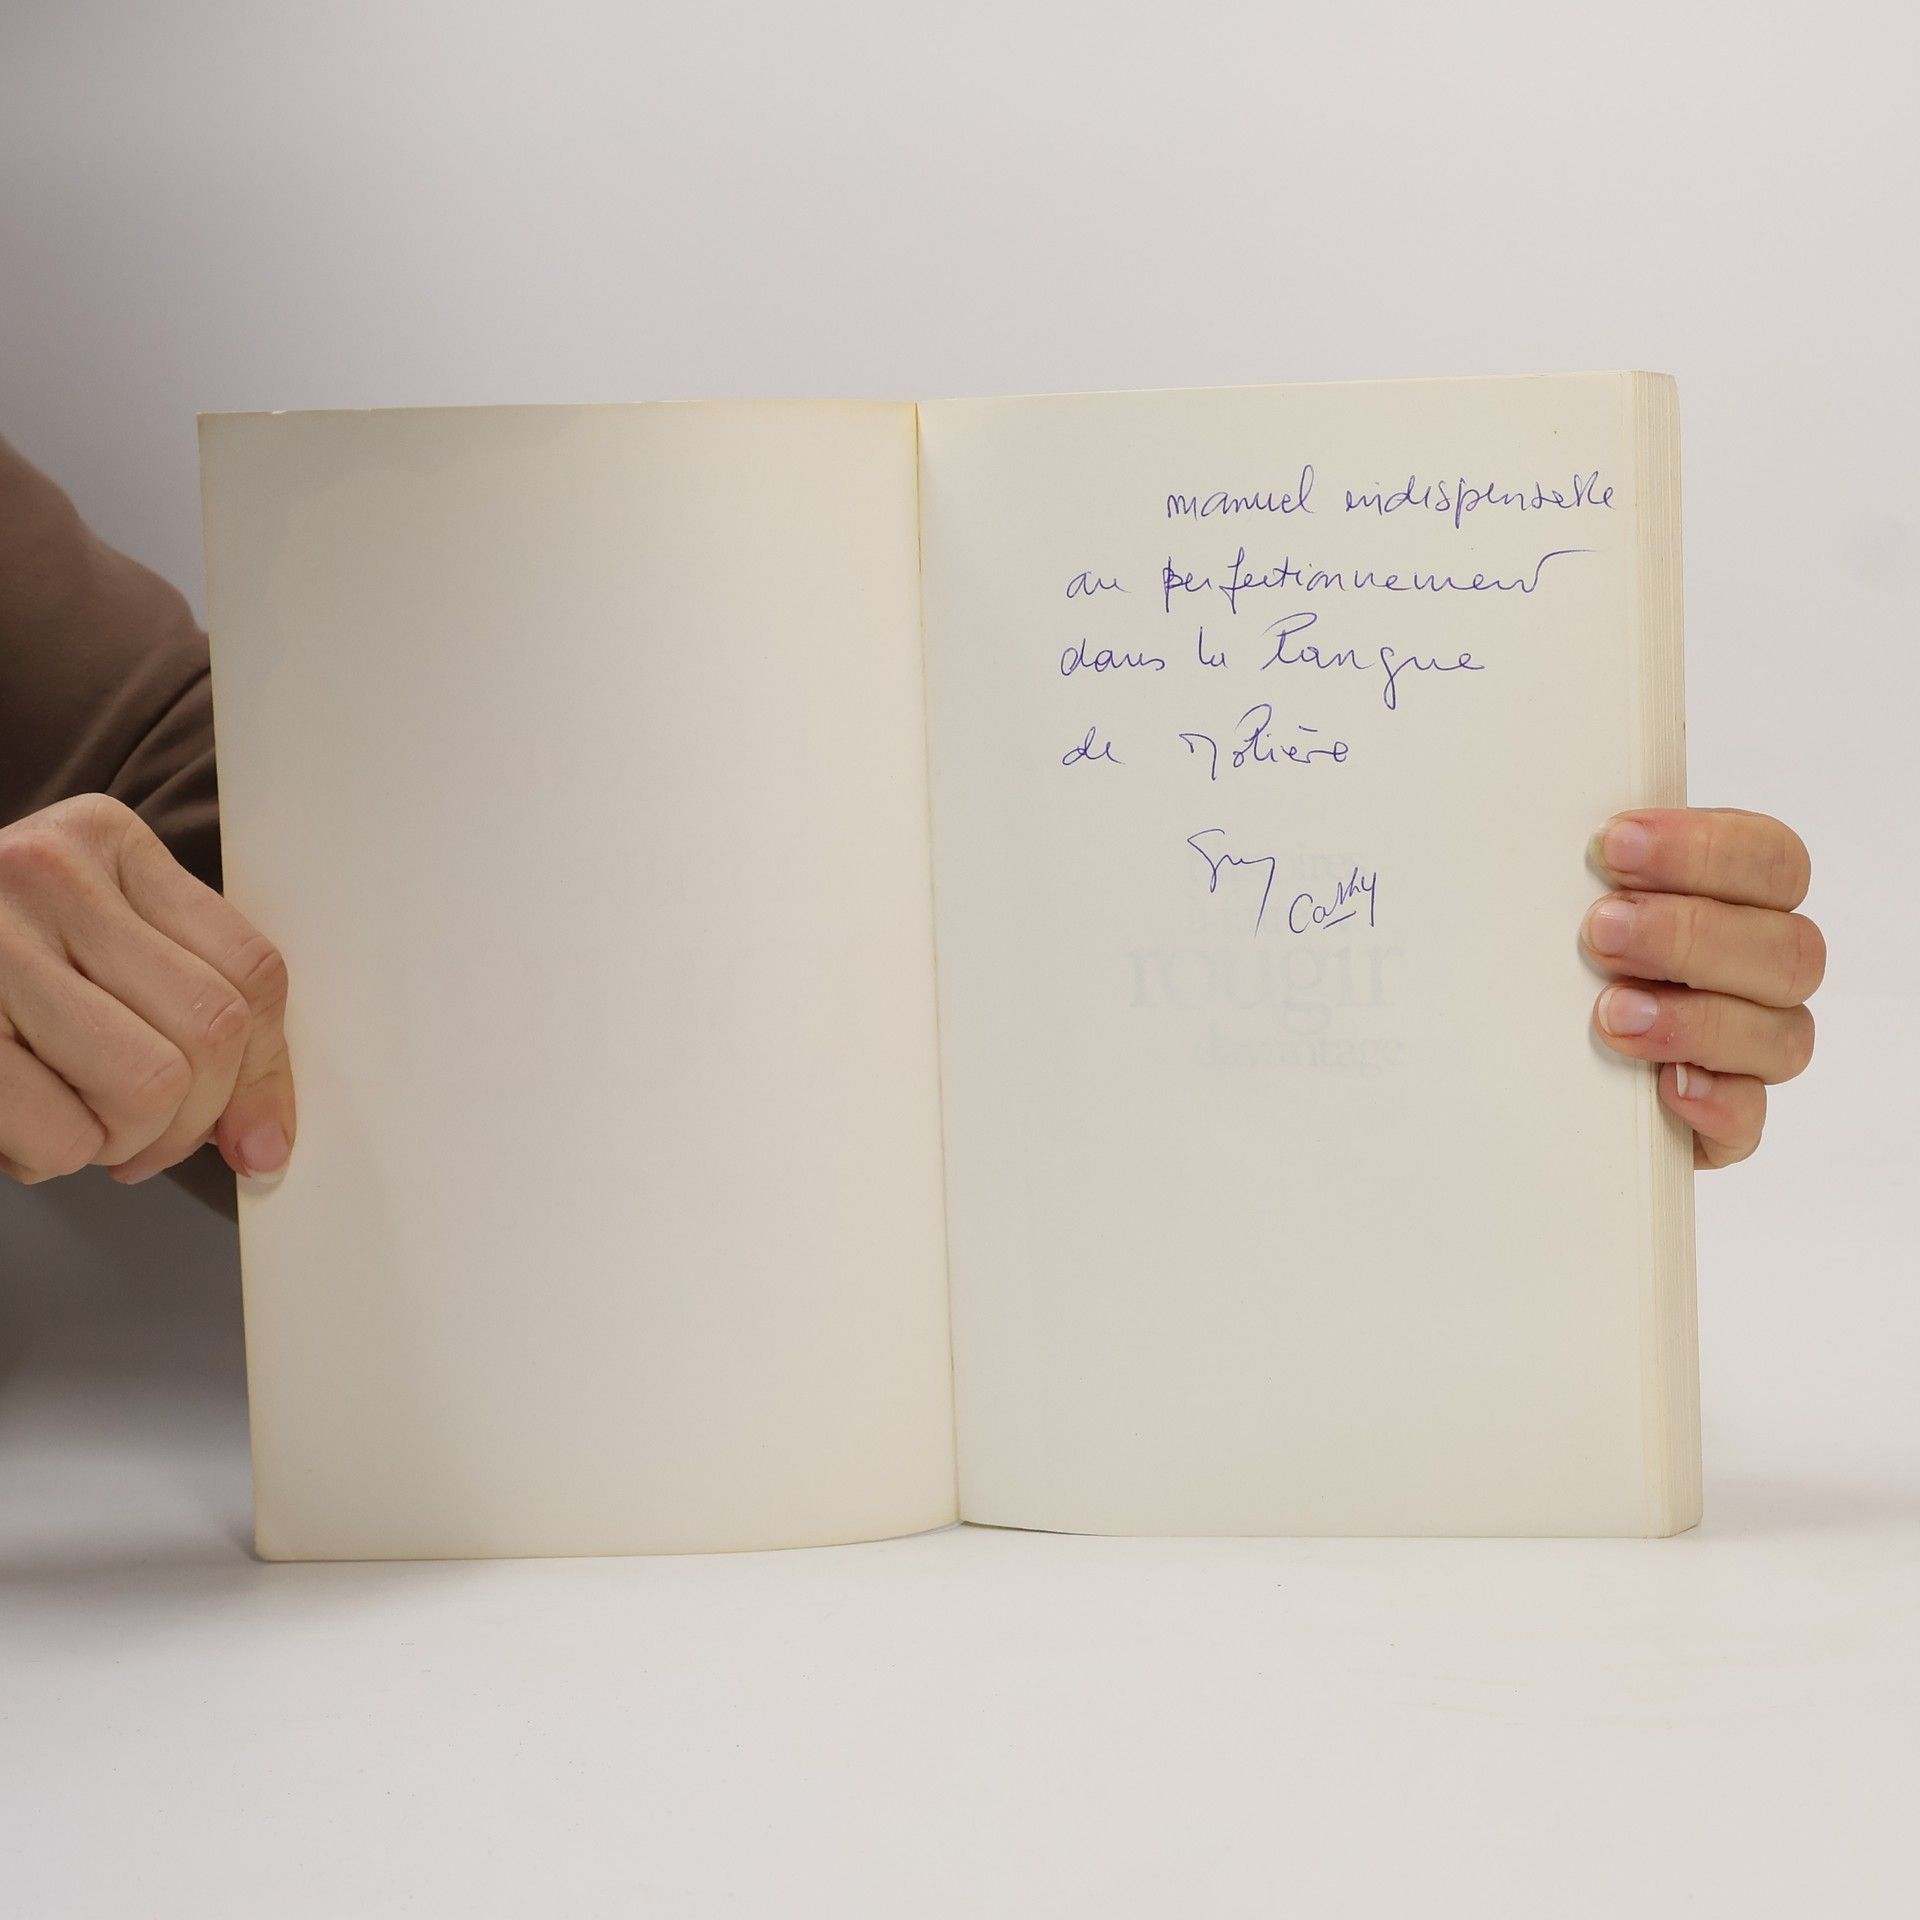 manuel indispensable
au perfectionnement
dans la langue
de Molière
Guy
Cathy
rougir
davantage